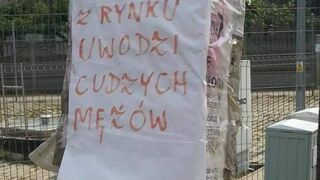 Z RYNKU
UWODZI
CUDZYCH
MĘŻÓW